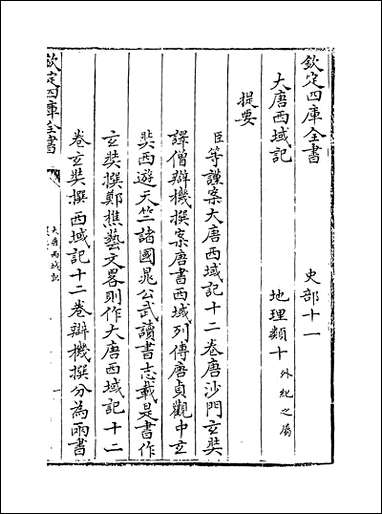 欽定四庫全書
史部十一
大唐西域記
地理類十外紀之屬
提要
臣等謹案大唐西域記十二卷唐沙門玄奘
譯僧辯機撰案唐書西域列傳唐貞觀中玄
奘西遊天竺諸國晁公武讀書志載是書作
玄奘撰鄭樵藝文畧則作大唐西域記十二
卷玄奘撰西域記十二卷辯機撰分為兩書
欽定四庫全書
大唐西域記
一